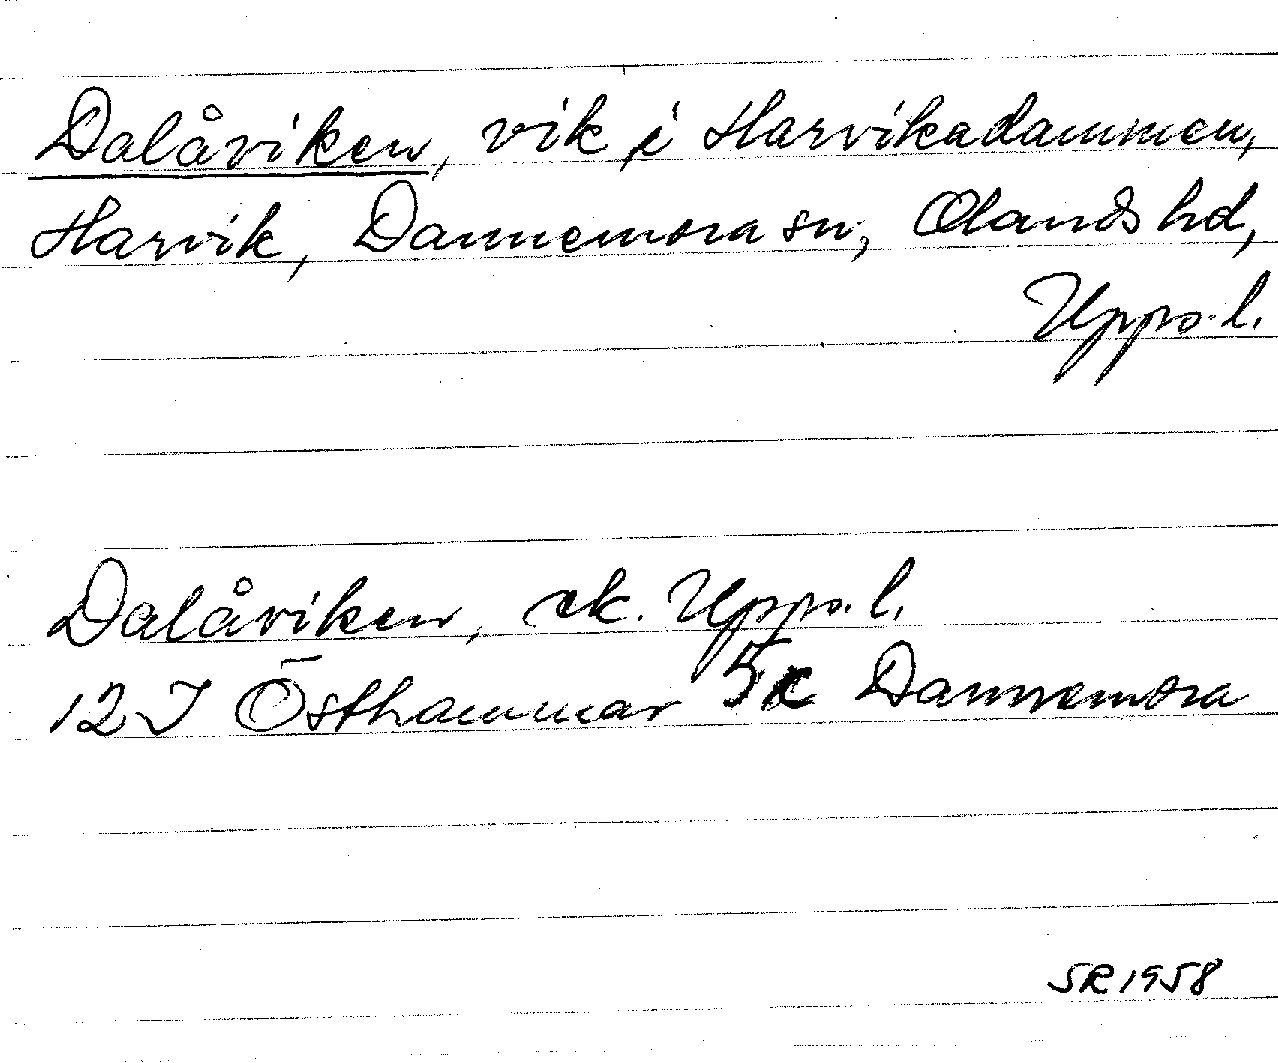 Dalåviken, vik i Harvikadammen,
Harvik, Dannemora sn, Olands hd,
Upps. l.
Dalåviken, ek. Upps. l.
12 I Östhammar 5c Dannemora
SR 1958